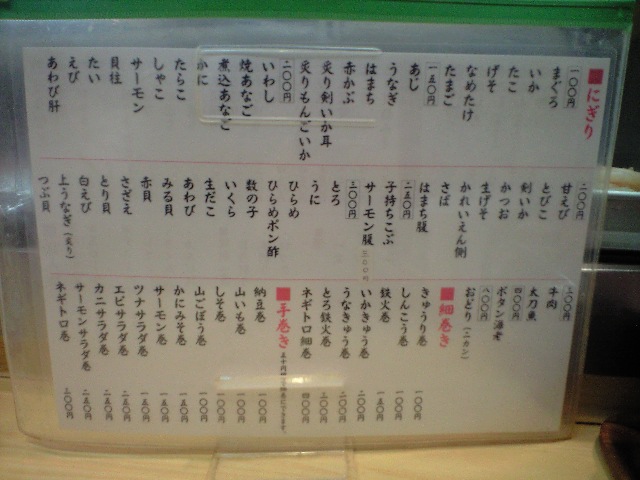 ■にぎり
一〇〇円
まぐろ
いか
たこ
げそ
なめたけ
たまご
一五〇円
あじ
うなぎ
はまち
赤かぶ
炙り剣いか耳
炙りもんごいか
二〇〇円
いわし
焼あなご
煮込あなご
かに
たらこ
しゃこ
サーモン
貝柱
たい
えび
あわび肝
二〇〇円
甘えび
とびこ
剣いか
かつお
生げそ
かれいえん側
さば
はまち腹
二五〇円
子持ちこぶ
サーモン腹
三〇〇円
とろ
うに
ひらめ
ひらめポン酢
数の子
いくら
生だこ
あわび
みる貝
赤貝
さざえ
とり貝
白えび
上うなぎ(炙り)
つぶ貝
三〇〇円
牛肉
太刀魚
四〇〇円
ボタン海老
八〇〇円
おどり(二カン)
■細巻き
きゅうり巻 一〇〇円
しんこう巻 一〇〇円
鉄火巻 一五〇円
いかきゅう巻 二〇〇円
うなきゅう巻 二〇〇円
とろ鉄火巻 三〇〇円
ネギトロ細巻 四〇〇円
■手巻き
納豆巻 一〇〇円
山いも巻 一〇〇円
しそ巻 一〇〇円
山ごぼう巻 一〇〇円
かにみそ巻 一五〇円
サーモン巻 一五〇円
ツナサラダ巻 一五〇円
エビサラダ巻 二五〇円
カニサラダ巻 二五〇円
サーモンサラダ巻 二五〇円
ネギトロ巻 三〇〇円